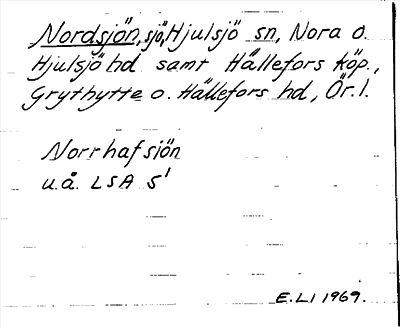 Nordsjön, sjö, Hjulsjö sn, Nora o.
Hjulsjö hd samt Hällefors köp.,
Grythytte o. Hällefors hd, Ör. l.
Norrhafsjön
u.å. LSA S¹
E.LI 1969.